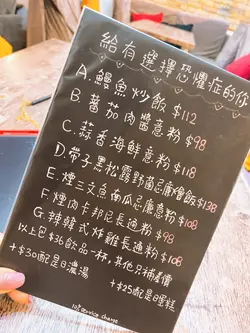 給有選擇恐懼症的你
A.鰻魚炒飯 $112
B.蕃茄肉醬意粉 $98
C.蒜香海鮮意粉 $118
D.帶子黑松露野菌忌廉燴飯 $138
E.煙三文魚南瓜忌廉意粉 $108
F.煙肉卡邦尼長通粉 $98
G.辣韓式炸雞長通粉 $108
以上包$36飲品一杯,其他只補差價
+$30配是日濃湯
+$35配是日蛋糕
10% service charge